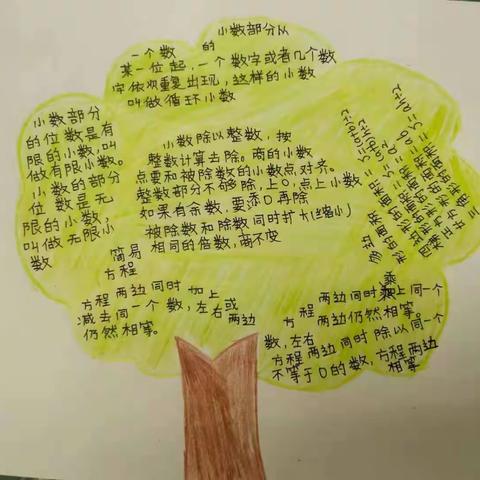 一个数的小数部分从
某一位起,一个数字或者几个数
字依次重复出现,这样的小数
叫做循环小数
小数部分
的位数是有
限的小数,叫
做有限小数。
小数的部分
位数是无
限的小数,
叫做无限小
数
小数除以整数,按
整数计算去除。商的小数
点要和被除数的小数点对齐。
整数部分不够除,上0,点上小数
如果有余数,要添0再除
被除数和除数同时扩大(缩小)
相同的倍数,商不变
三角形的面积=S=ah÷2
正方形的面积=S=a²
简易
方程
方程两边同时加上或
减去同一个数,左右两边
仍然相等。
方程两边同时乘上同一个
数,左右两边仍然相等
方程两边同时除以同一个
不等于0的数,方程两边
相等